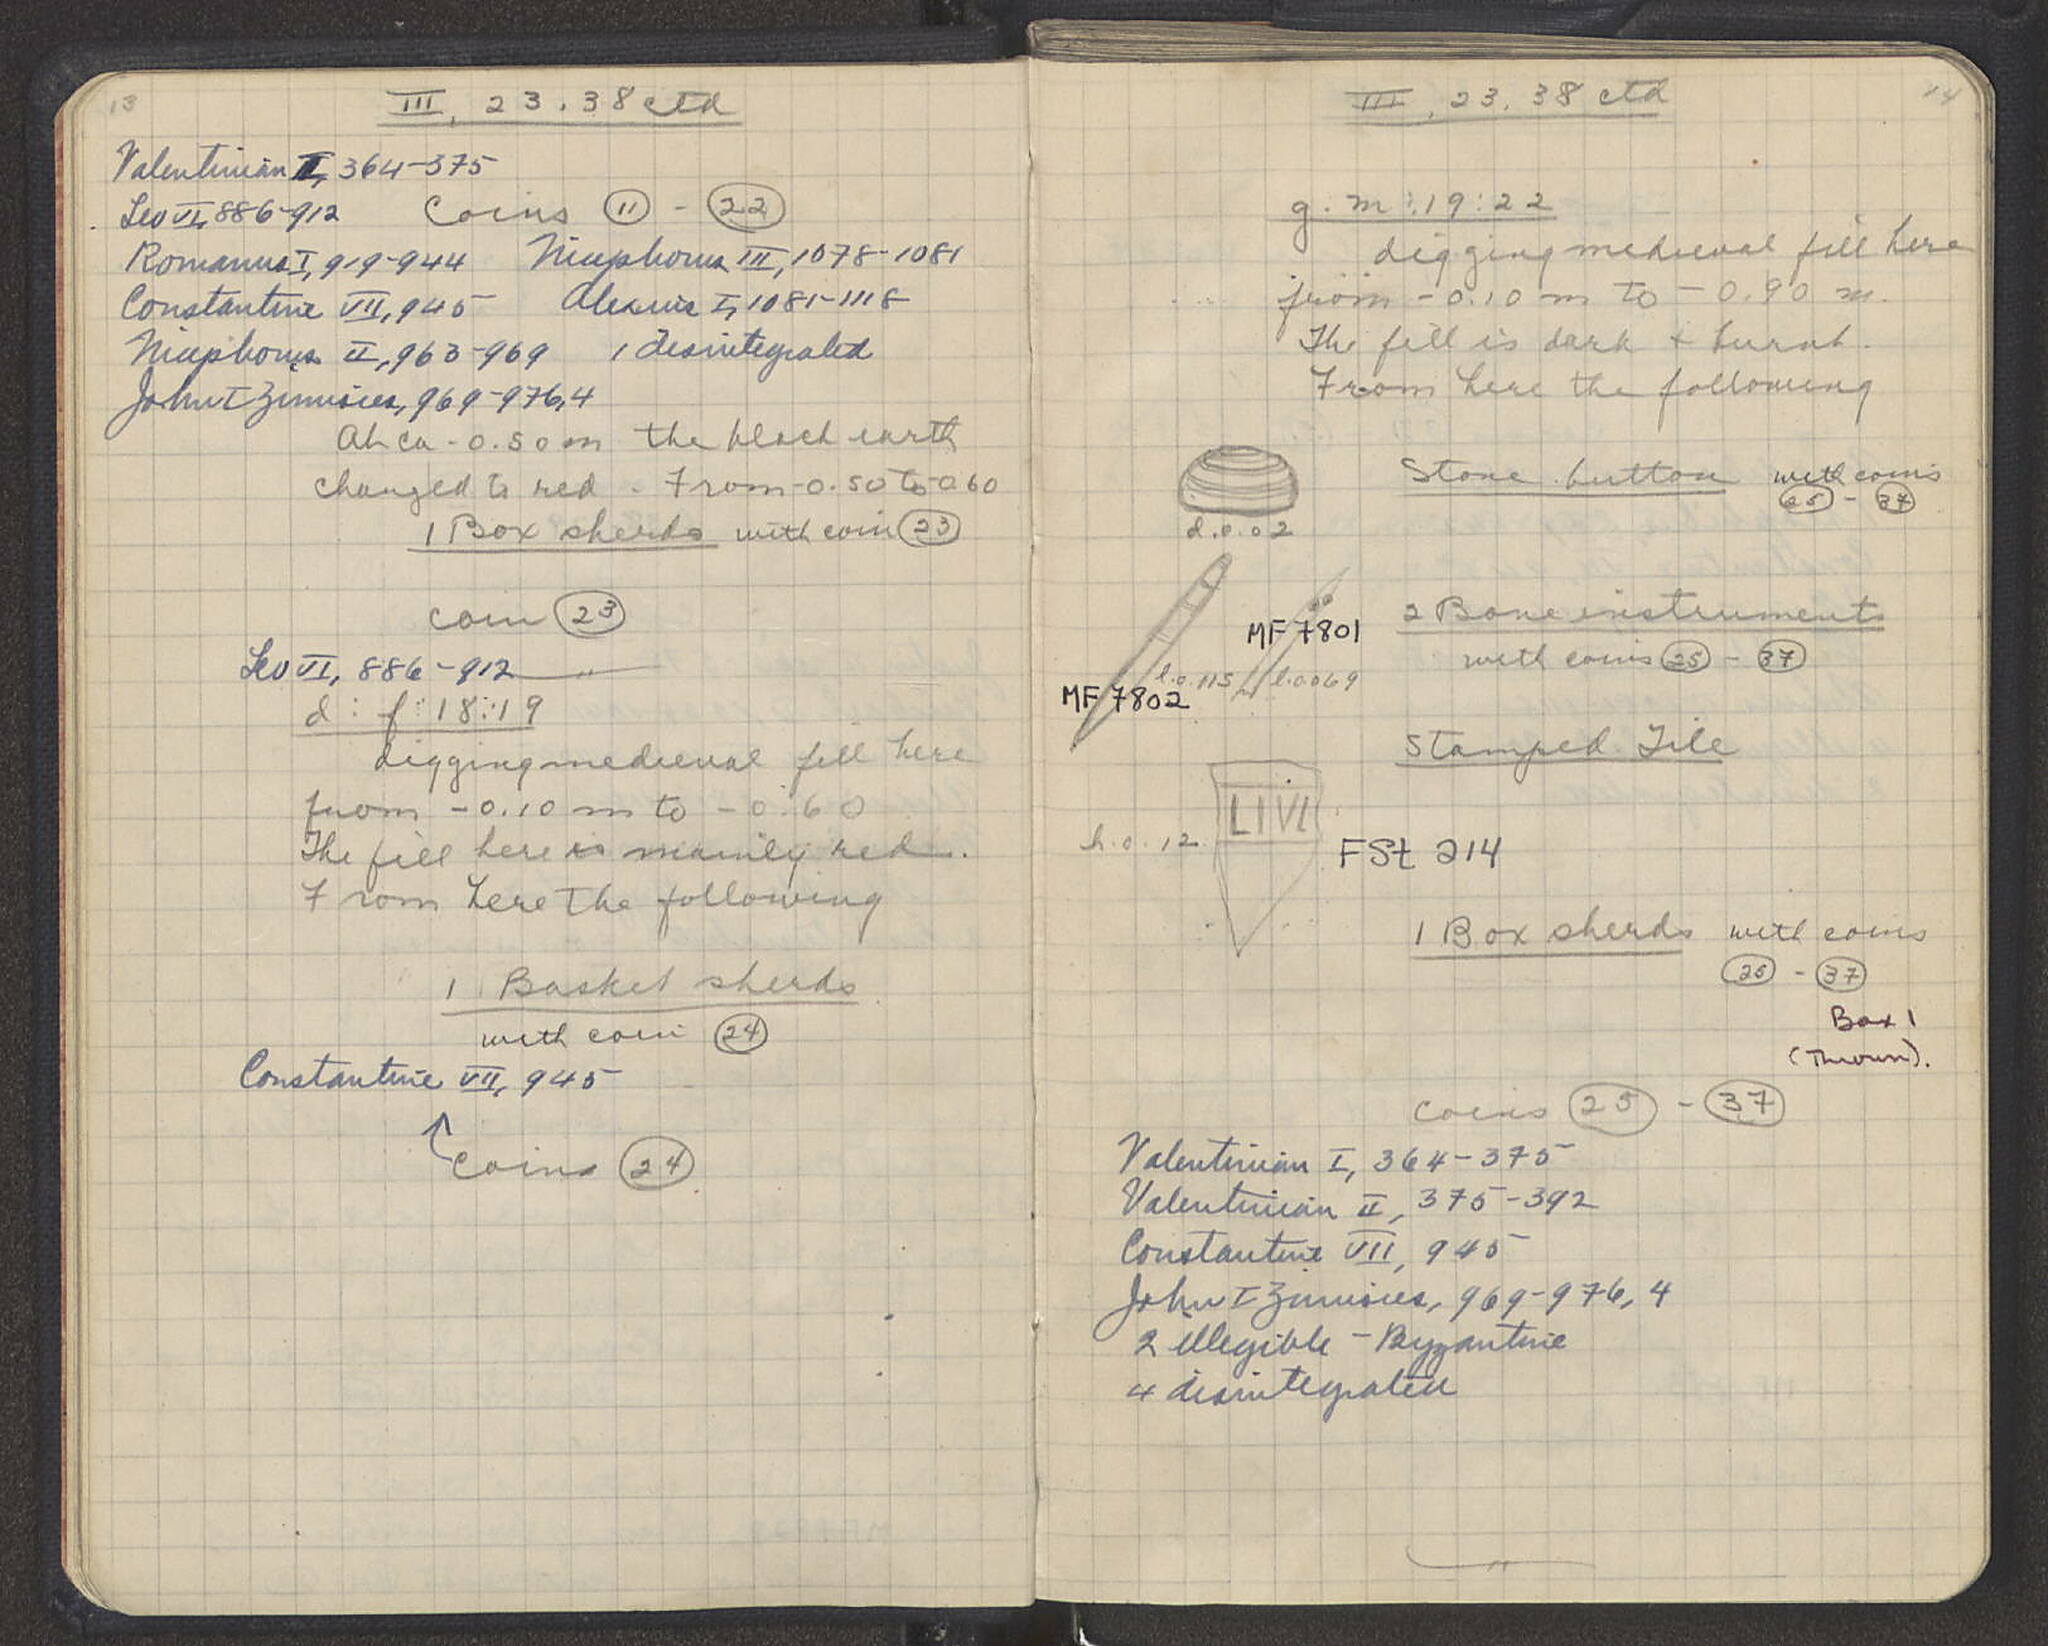 13
III, 23.38 ctd
Valentinian I, 364-375
Leo VI, 886-912 Coins 11 - 22
Romanus I, 919-944 Nicephorus III, 1078-1081
Constantine VII, 945 Alexius I, 1081-1118
Nicephorus II, 963-969 1 disintegrated
John I Zimisces, 969-976, 4
At ca -0.50 m the black earth
changed to red. From -0.50 to -0.60
1 Box sherds with coin 23
coin 23
Leo VI, 886-912
d : f : 18 : 19
digging medieval fill here
from -0.10 m to -0.60
The fill here is mainly red.
From here the following
1 Basket sherds
with coin 24
Constantine VII, 945
Coins 24
14
III, 23.38 ctd
g : m : 19 : 22
digging medieval fill here
from -0.10 m to -0.90 m.
The fill is dark + burnt.
From here the following
Stone button with coins
25 - 37
d. 0.02
2 Bone instruments
MF 7801
with coins 25 - 37
l. 0.115 l. 0.069
MF 7802
Stamped Tile
LIVI
h. 0.12
FSt 214
1 Box sherds with coins
25 - 37
Box 1
(Thrown).
coins 25 - 37
Valentinian I, 364-375
Valentinian II, 375-392
Constantine VII, 945
John I Zimisces, 969-976, 4
2 illegible - Byzantine
4 disintegrated